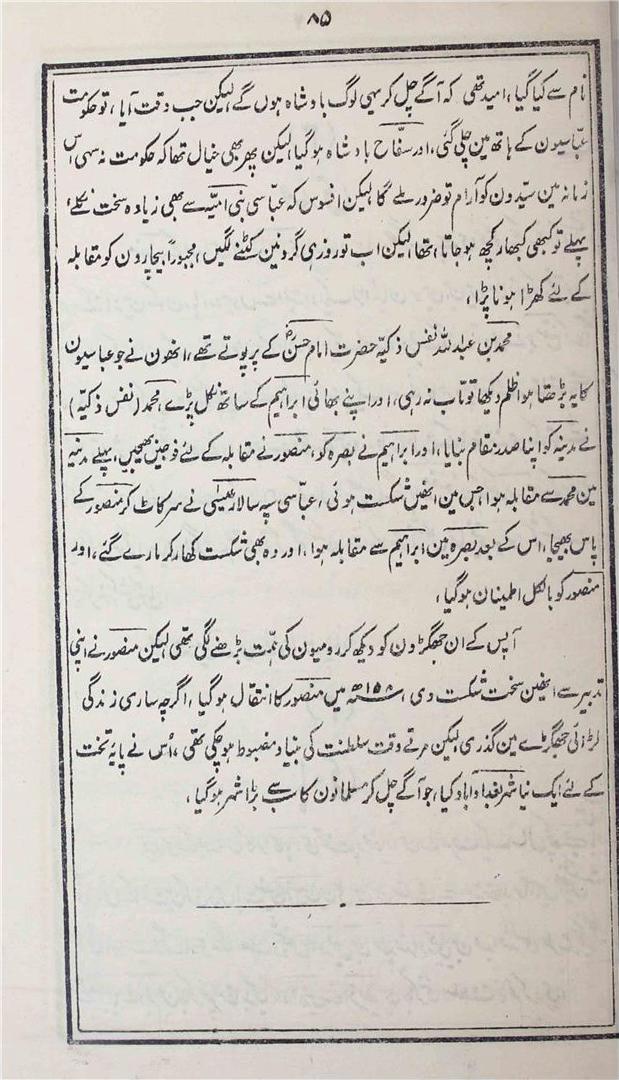 ۸۵
نام سے کیا گیا، امید تھی کہ آگے چل کر یہی لوگ بادشاہ ہوں گے لیکن جب وقت آیا، تو حکومت
عباسیون کے ہاتھ مین چلی گئی، اور سفّاح بادشاہ ہو گیا لیکن پھر بھی خیال تھا کہ حکومت نہ سہی اس
زمانہ مین سیّدون کو آرام تو ضرور ملے گا لیکن افسوس کہ عباسی بنی امیّہ سے بھی زیادہ سخت نکلے،
پہلے تو کبھی کبھار کچھ ہو جاتا تھا لیکن اب تو روز ہی گردنین کٹنے لگین، مجبوراً بیچارون کو مقابلہ
کے لئے کھڑا ہونا پڑا،
محمد بن عبد اللہ نفس ذکیّہ حضرت امام حسنؓ کے پرپوتے تھے، انھون نے جو عباسیون
کا یہ بڑھتا ہوا ظلم دیکھا تو تاب نہ رہی، اور اپنے بھائی ابراہیم کے ساتھ نکل پڑے، محمد (نفس ذکیّہ)
نے مدینہ کو اپنا صدر مقام بنایا، اور ابراہیم نے بصرہ کو، منصور نے مقابلہ کے لئے فوجین بھیجین، پہلے مدینہ
مین محمد سے مقابلہ ہوا جس مین انھین شکست ہوئی، عباسی سپہ سالار عیسیٰ نے سر کاٹ کر منصور کے
پاس بھیجا، اس کے بعد بصرہ مین ابراہیم سے مقابلہ ہوا، اور وہ بھی شکست کھا کر مارے گئے، اور
منصور کو بالکل اطمینان ہو گیا،
آپس کے ان جھگڑون کو دیکھ کر رومیون کی ہمّت بڑھنے لگی تھی لیکن منصور نے اپنی
تدبیر سے انھین سخت شکست دی، ۱۵۸ھ میں منصور کا انتقال ہو گیا، اگرچہ ساری زندگی
لڑائی جھگڑے مین گذری لیکن مرتے وقت سلطنت کی بنیاد مضبوط ہو چکی تھی، اُس نے پایۂ تخت
کے لئے ایک نیا شہر بغداد آباد کیا، جو آگے چل کر مسلمانون کا سب سے بڑا شہر ہو گیا،